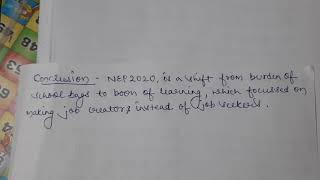 Conclusion - NEP 2020, is a shift from burden of
school bags to boon of learning, which focussed on
making job creators instead of job seekers.
48